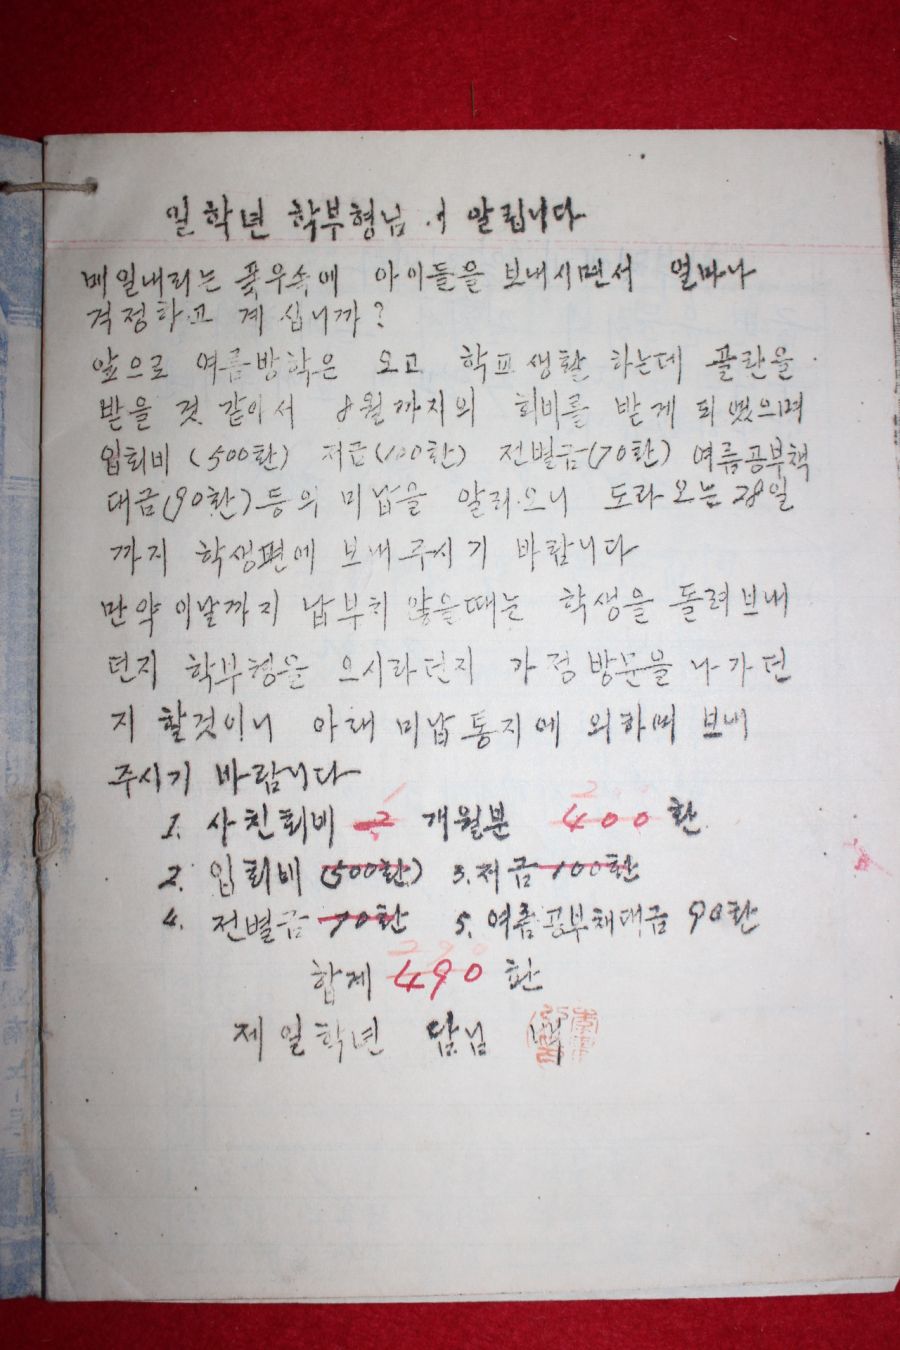 일학년 학부형님 알립니다
매일내리는 폭우속에 아이들을 보내시면서 얼마나
걱정하고 계십니까?
앞으로 여름방학은 오고 학교생활 하는데 곤란을
받을 것 같아서 8월까지의 회비를 받게 되였으며
입회비 (500환) 저금(100환) 전별금(70환) 여름공부책
대금(90환)등의 미납을 알리오니 도라오는 28일
까지 학생편에 보내주시기 바랍니다
만약 이날까지 납부치 않을때는 학생을 돌려보내
던지 학부형을 오시라던지 가정방문을 나가던
지 할것이니 아래 미납통지에 의하여 보내
주시기 바랍니다
1. 사친회비 2 1 개월분 400 환
2. 입회비 (500환) 3. 저금 100환
4. 전별금 70환 5. 여름공부채대금 90환
290
합계 490 환
제일학년 담님